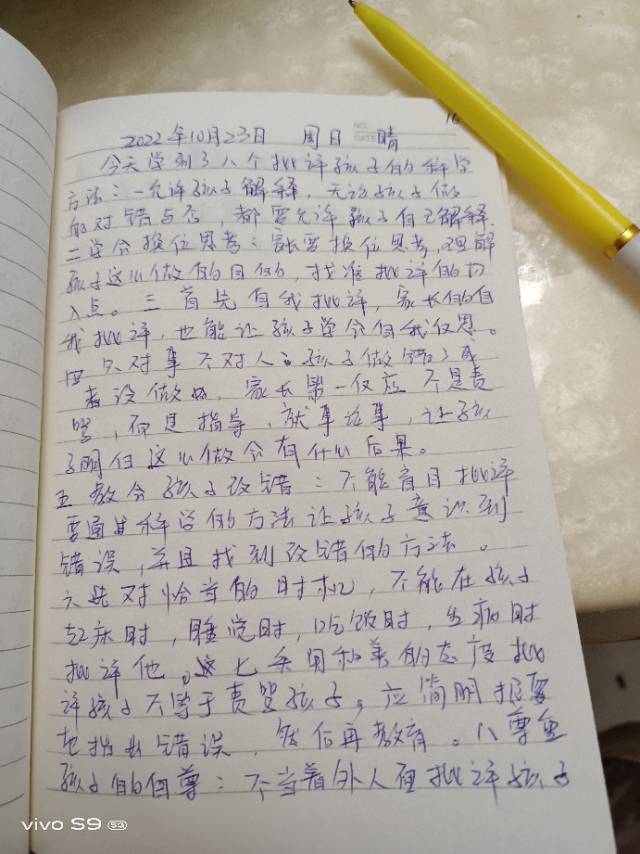 16
NO.
DATE
2022年10月23日 周日 晴
今天学到了八个批评孩子的科学
方法：一允许孩子解释，无论孩子做
的对错与否，都要允许孩子自己解释.
二学会换位思考：就要换位思考，理解
孩子这么做的目的，找准批评的切
入点。三首先自我批评，家长的自
我批评，也能让孩子学会自我反思。
四只对事不对人：孩子做错了或
者没做好，家长第一反应不是责
骂，而是指导，就事论事，让孩
子明白这么做会有什么后果。
五教会孩子改错：不能盲目批评
要通过科学的方法让孩子意识到
错误，并且找到改错的方法。
六选对恰当的时机，不能在孩子
起床时，睡觉时，吃饭时，生病时
批评他。七采用和善的态度批
评孩子不等于责骂孩子，应简明扼要
地指出错误，然后再教育。八尊重
孩子的自尊：不当着外人面批评孩子
vivo S9